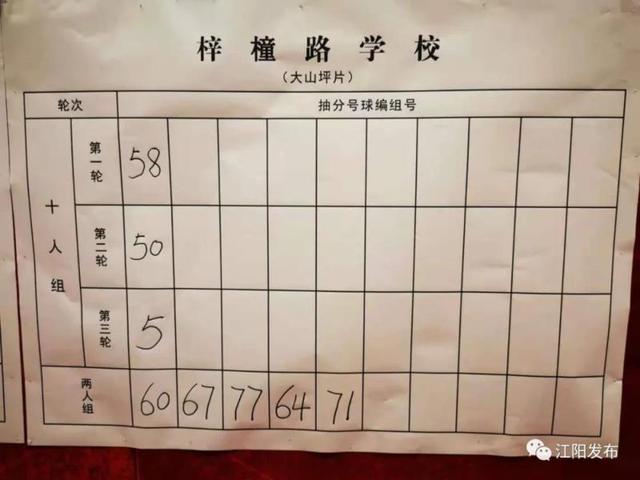 梓橦路学校
（大山坪片）
轮次 抽分号球编组号
十人组
第一轮 58
第二轮 50
第三轮 5
两人组 60 67 77 64 71
江阳发布